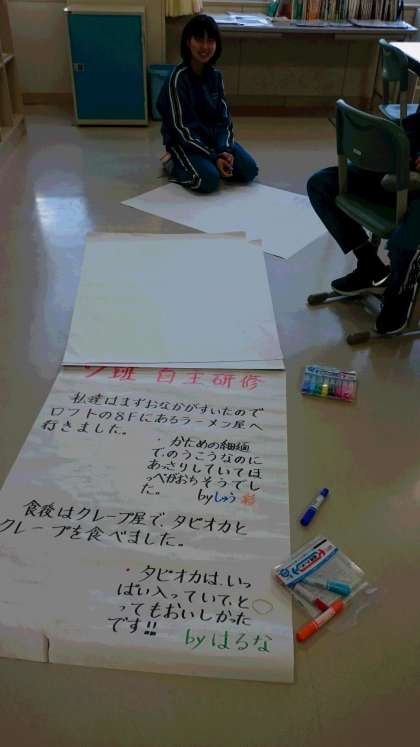 班 自主研修
私達はまずおなかがすいたので
ロフトの8Fにあるラーメン屋へ
行きました。
・かための細麺
で、のうこうなのに
あっさりしていてほ
っぺがおちそうでし
た。 byしゅう
食後はクレープ屋で、タピオカと
クレープを食べました。
・タピオカは、いっ
ぱい入っていて、と
ってもおいしかった
です!!
by はるな